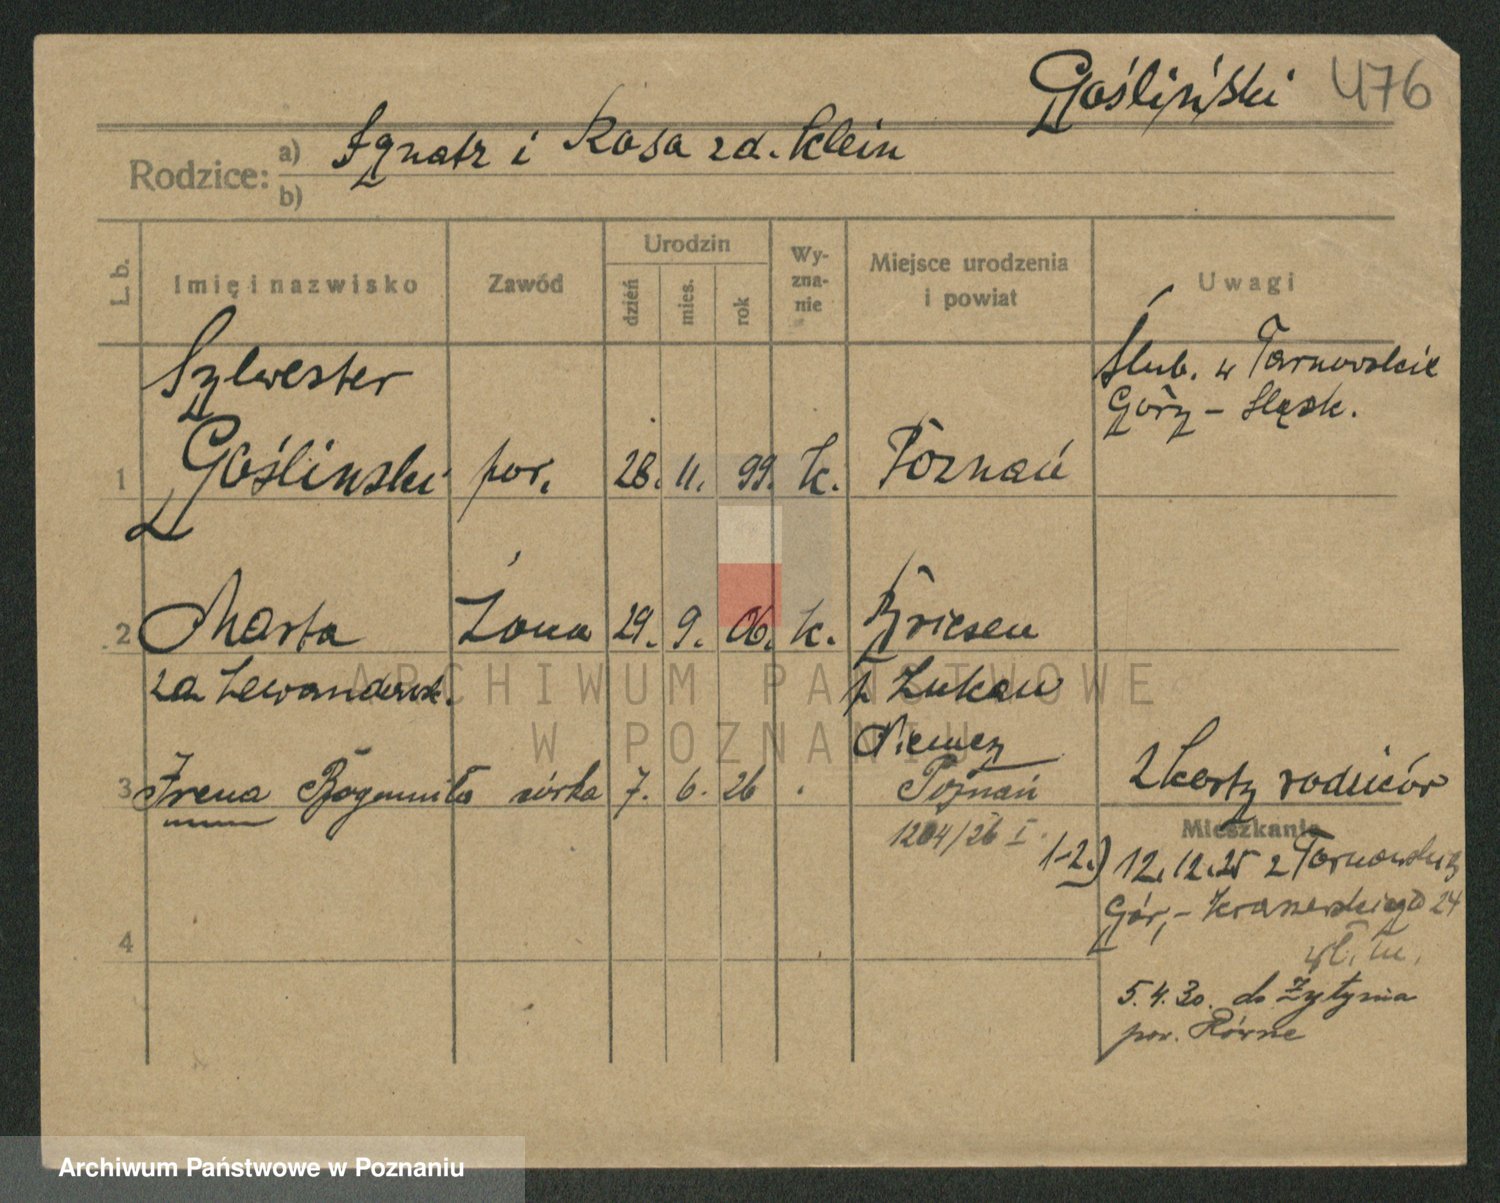 Gośliński 476
Rodzice: a) Ignatz i Rosa zd. Klein
b)
L. b. Imię i nazwisko Zawód Urodzin dzień mies. rok Wy-zna-nie Miejsce urodzenia i powiat Uwagi
Sylwester
Ślub. w Tarnowskie
Góry – Śląsk.
1 Gośliński por. 28. 11. 99. k. Poznań
2 Marta żona 29. 9. 06. k. Briesen
za Lewandowsk. p Lukau
Niemcy
3 Irena Bogumiła córka 7. 6. 26 Poznań
2 karty rodziców
1204/26 I.
Mieszkanie
1-2.) 12.12.25 z Tarnowskich
Gór, – 24
4
5.4.30. do Żytynia
pow. Równe
ARCHIWUM PAŃSTWOWE
W POZNANIU
Archiwum Państwowe w Poznaniu